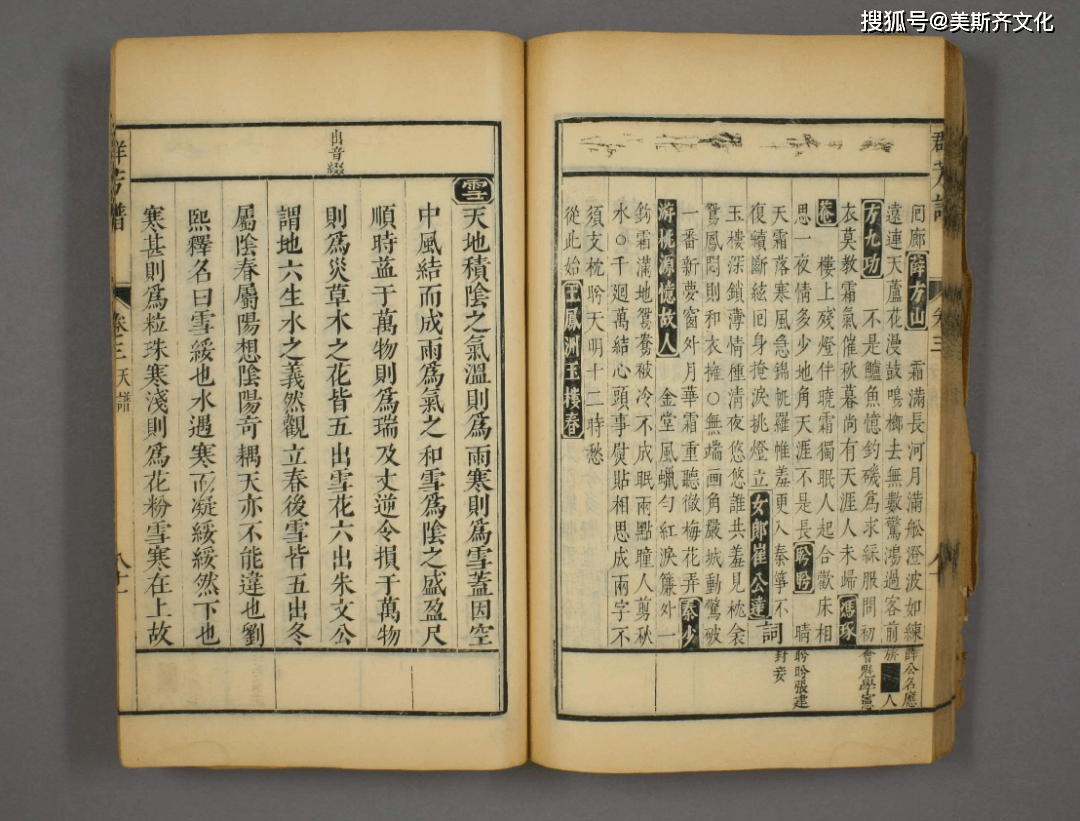 搜狐号@美斯齐文化
群芳譜 卷三
回廊薛方山 霜滿長河月滿舩澄波如練薛公名應
遠連天蘆花漫鼓鳴榔去無數驚鴻過客前旂人
方九功 不是鱸魚憶釣磯爲求綵服問初會魁學憲
衣莫教霜氣催秋暮尚有天涯人未歸馮琢
菴 樓上殘燈伴曉霜獨眠人起合歡床相
思一夜情多少地角天涯不是長盼盼 晴盼盼張建
天霜落寒風急錦幌羅帷羞更入秦箏不封妾
復續斷絃回身掩淚挑燈立女郎崔公達詞
玉樓深鎖薄情種清夜悠悠誰共羞見枕衾
鴛鳳悶則和衣擁○無端畫角嚴城動驚破
一番新夢窗外月華霜重聽徹梅花弄秦少
游桃源憶故人 金堂風蠟勻紅淚簾外一
鉤霜滿地鴛鴦被冷不成眠兩點瞳人剪秋
水○千廻萬結心頭事熨貼相思成兩字不
須支枕聆天明十二時愁
從此始王鳳洲玉樓春
出音綴
雪天地積陰之氣溫則爲雨寒則爲雪蓋因空
中風結而成雨爲氣之和雪爲陰之盛盈尺
順時葢于萬物則爲瑞及丈逆令損于萬物
則爲災草木之花皆五出雪花六出朱文公
謂地六生水之義然觀立春後雪皆五出冬
屬陰春屬陽想陰陽奇耦天亦不能違也劉
熙釋名曰雪綏也水遇寒而凝綏綏然下也
寒甚則爲粒珠寒淺則爲花粉雪寒在上故
群芳譜 卷三 天譜 八十一